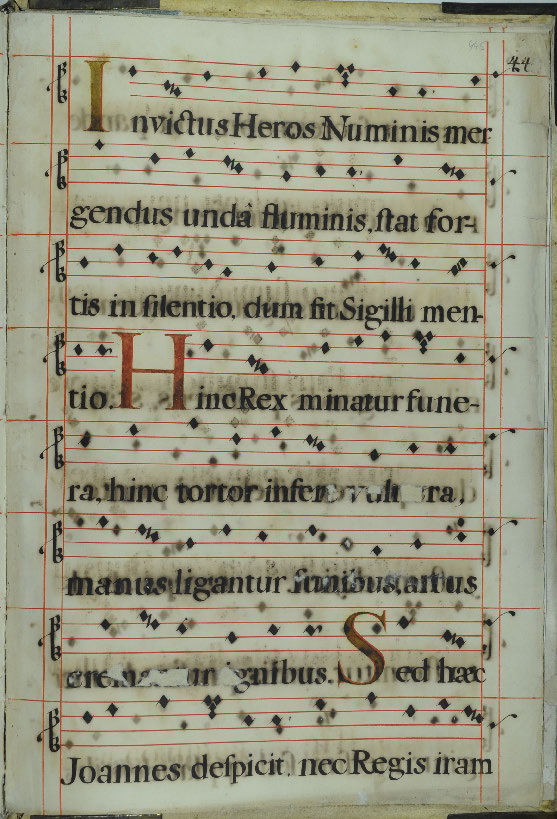 44
Invictus Heros Numinis mer
gendus unda fluminis, stat for-
tis in silentio, dum fit Sigilli men-
tio. Hinc Rex minatur fune-
ra, hinc tortor infert
manus ligantur funibus, artus
ignibus. Sed hæc
Joannes despicit, nec Regis iram